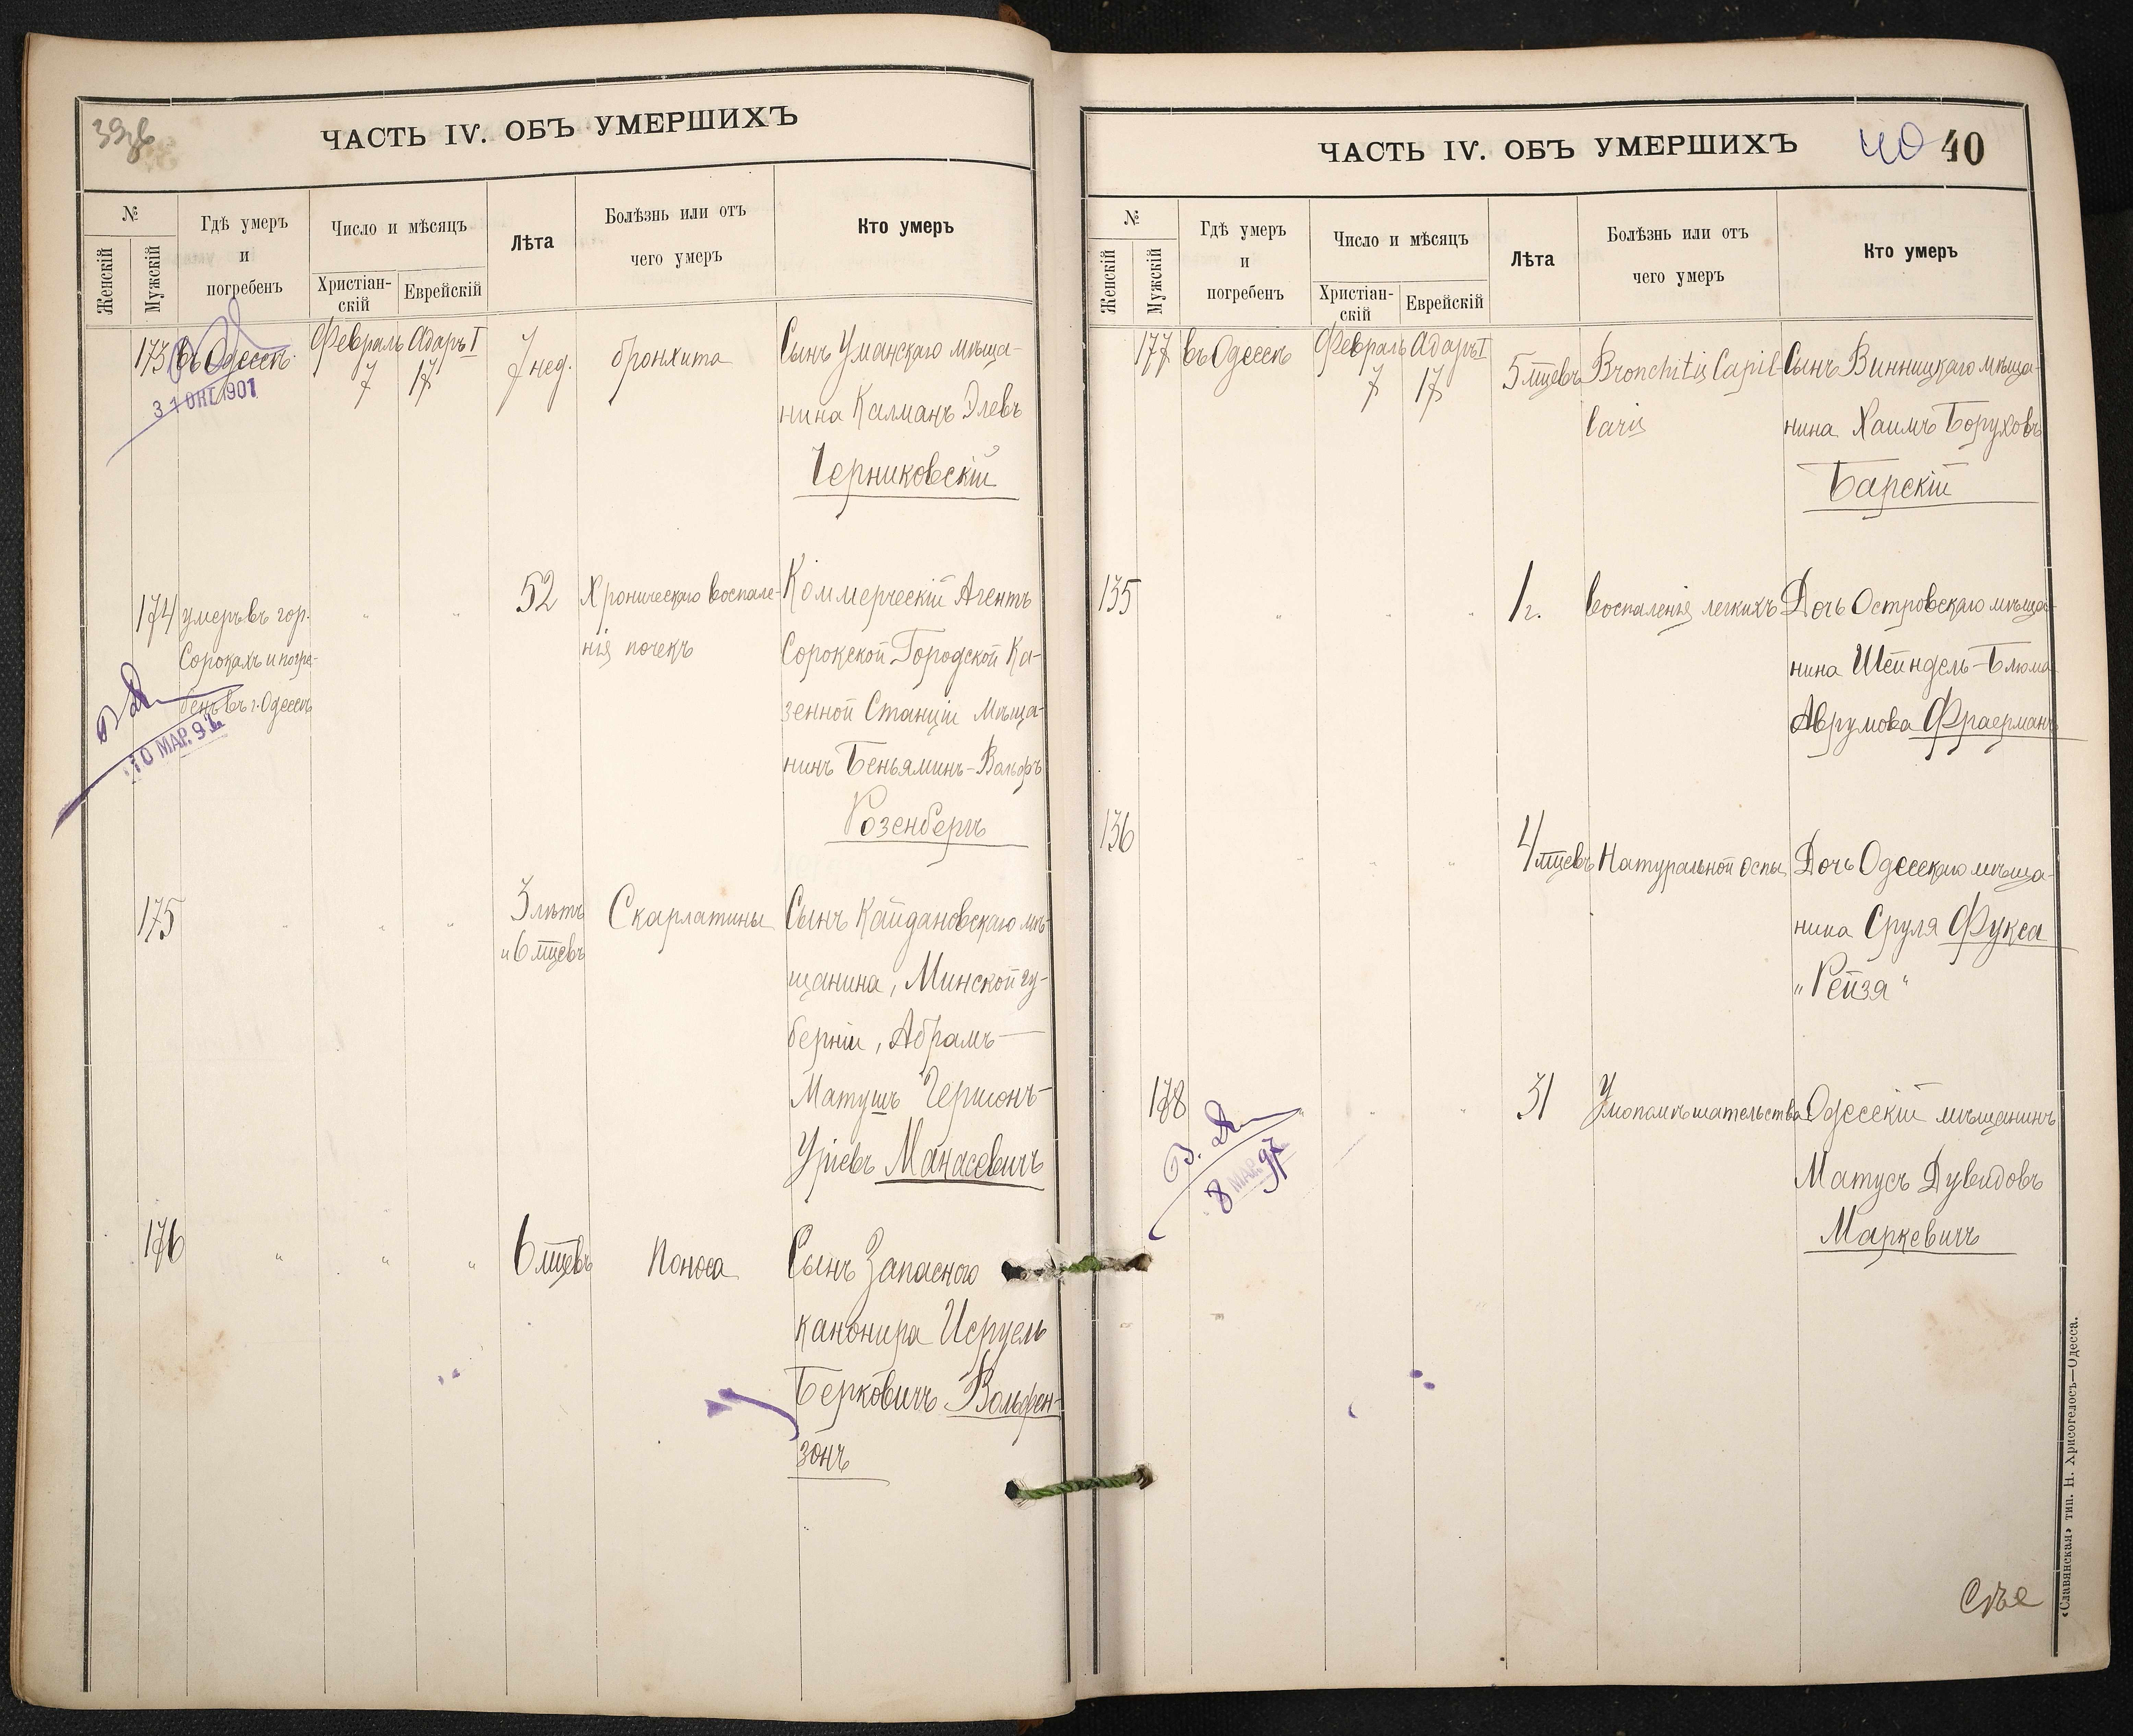 39об
ЧАСТЬ IV. ОБЪ УМЕРШИХЪ
№
Женскій
Мужскій
Гдѣ умеръ
и
погребенъ
Число и мѣсяцъ
Христіан-
скій
Еврейскій
Лѣта
Болѣзнь или отъ
чего умеръ
Кто умеръ
173 въ Одессѣ Февраль Адаръ I 7 нед. бронхита Сынъ Уманскаго мѣща-
7 17
31 ОКТ. 1901
нина Калманъ Элевъ
Черниковскій
174 умеръ въ гор. " " 52 Хроническаго воспале- Коммерческій Агентъ
Сорокахъ и погре- нія почекъ Сорокской Городской Ка-
бенъ въ г. Одессѣ зенной Станціи Мѣща-
10 МАР. 97
нинъ Беньяминъ-Вольфъ
Розенбергъ
175 " " " 3 лѣтъ Скарлатины Сынъ Кайдановскаго мѣ-
и 6 мцевъ
щанина, Минской гу-
берніи, Абрамъ-
Матушъ Гершонъ-
Уріевъ Манасевичъ
176 " " " 6 мцевъ Поноса Сынъ Запаснаго
канонира Исруель
Берковичъ Вольфен-
зонъ
ЧАСТЬ IV. ОБЪ УМЕРШИХЪ
40 40
№
Женскій
Мужскій
Гдѣ умеръ
и
погребенъ
Число и мѣсяцъ
Христіан-
скій
Еврейскій
Лѣта
Болѣзнь или отъ
чего умеръ
Кто умеръ
177 въ Одессѣ Февраль Адаръ I 5 мцевъ Bronchitis Capil- Сынъ Винницкаго мѣща-
7 17
laris нина Хаимъ Боруховъ
Барскій
135 " " " 1 г. воспаленія легкихъ Дочь Островскаго мѣща-
нина Шейндель-Блюма
Аврумова Фраерманъ
136 " " " 4 мцевъ Натуральной оспы Дочь Одесскаго мѣща-
нина Сруля Фукса
"Рейзя"
178 " " " 31 Умопомѣшательства Одесскій мѣщанинъ
8 МАР. 97
Матусъ Дувидовъ
Маркевичъ
«Славянская» тип. Н. Хрисогелосъ—Одесса.